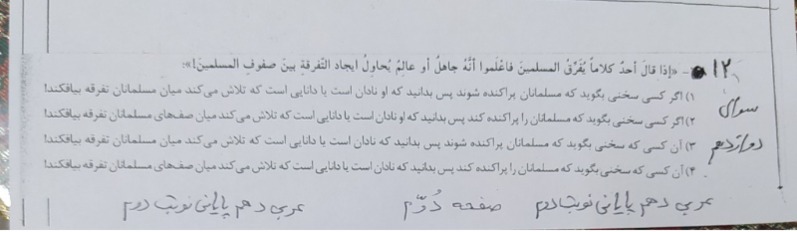 ۱۲- «إذا قالَ أحدٌ كلاماً يُفَرِّقُ المسلمينَ فَاعْلَموا أنَّهُ جاهلٌ أو عالِمٌ يُحاوِلُ ایجاد التّفرقةِ بينَ صفوفِ المسلمينَ!»:
۱) اگر کسی سخنی بگوید که مسلمانان پراکنده شوند پس بدانید که او نادان است یا دانایی است که تلاش می‌کند میان مسلمانان تفرقه بیافکند!
سوال ۲) اگر کسی سخنی بگوید که مسلمانان را پراکنده کند پس بدانید که او نادان است یا دانایی است که تلاش می‌کند میان صف‌های مسلمانان تفرقه بیافکند!
دوازدهم ۳) آن کسی که سخنی بگوید که مسلمانان پراکنده شوند پس بدانید که نادان است یا دانایی است که تلاش می‌کند میان مسلمانان تفرقه بیافکند!
۴) آن کسی که سخنی بگوید که مسلمانان را پراکنده کند پس بدانید که نادان است یا دانایی است که تلاش می‌کند میان صف‌های مسلمانان تفرقه بیافکند!
عربی دهم پایانی نوبت دوم صفحه دُوّم عربی دهم پایانی نوبت دوم